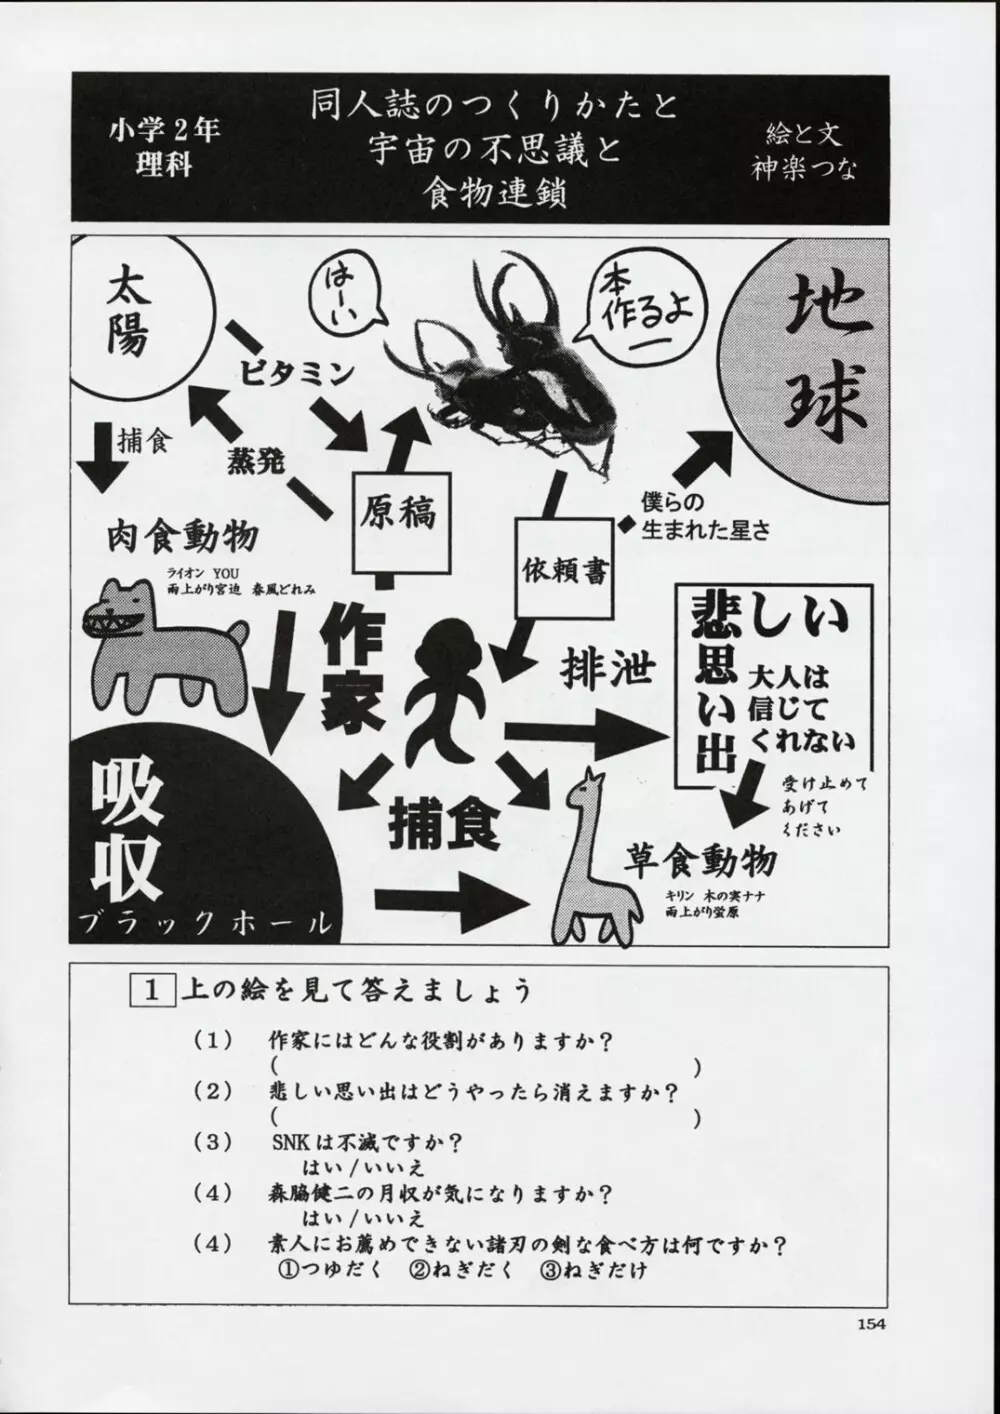 小学2年
理科
同人誌のつくりかたと
宇宙の不思議と
食物連鎖
絵と文
神楽つな
太陽
はーい
本
作るよ
ー
地球
ビタミン
捕食
蒸発
原稿
僕らの
生まれた星さ
依頼書
肉食動物
ライオン YOU
雨上がり宮迫 春風どれみ
作家
排泄
悲しい
思い出
大人は
信じて
くれない
受け止めて
あげて
ください
吸収
ブラックホール
捕食
草食動物
キリン 木の実ナナ
雨上がり蛍原
1 上の絵を見て答えましょう
(1) 作家にはどんな役割がありますか?
( )
(2) 悲しい思い出はどうやったら消えますか?
( )
(3) SNKは不滅ですか?
はい/いいえ
(4) 森脇健二の月収が気になりますか?
はい/いいえ
(4) 素人にお薦めできない諸刃の剣な食べ方は何ですか?
①つゆだく ②ねぎだく ③ねぎだけ
154